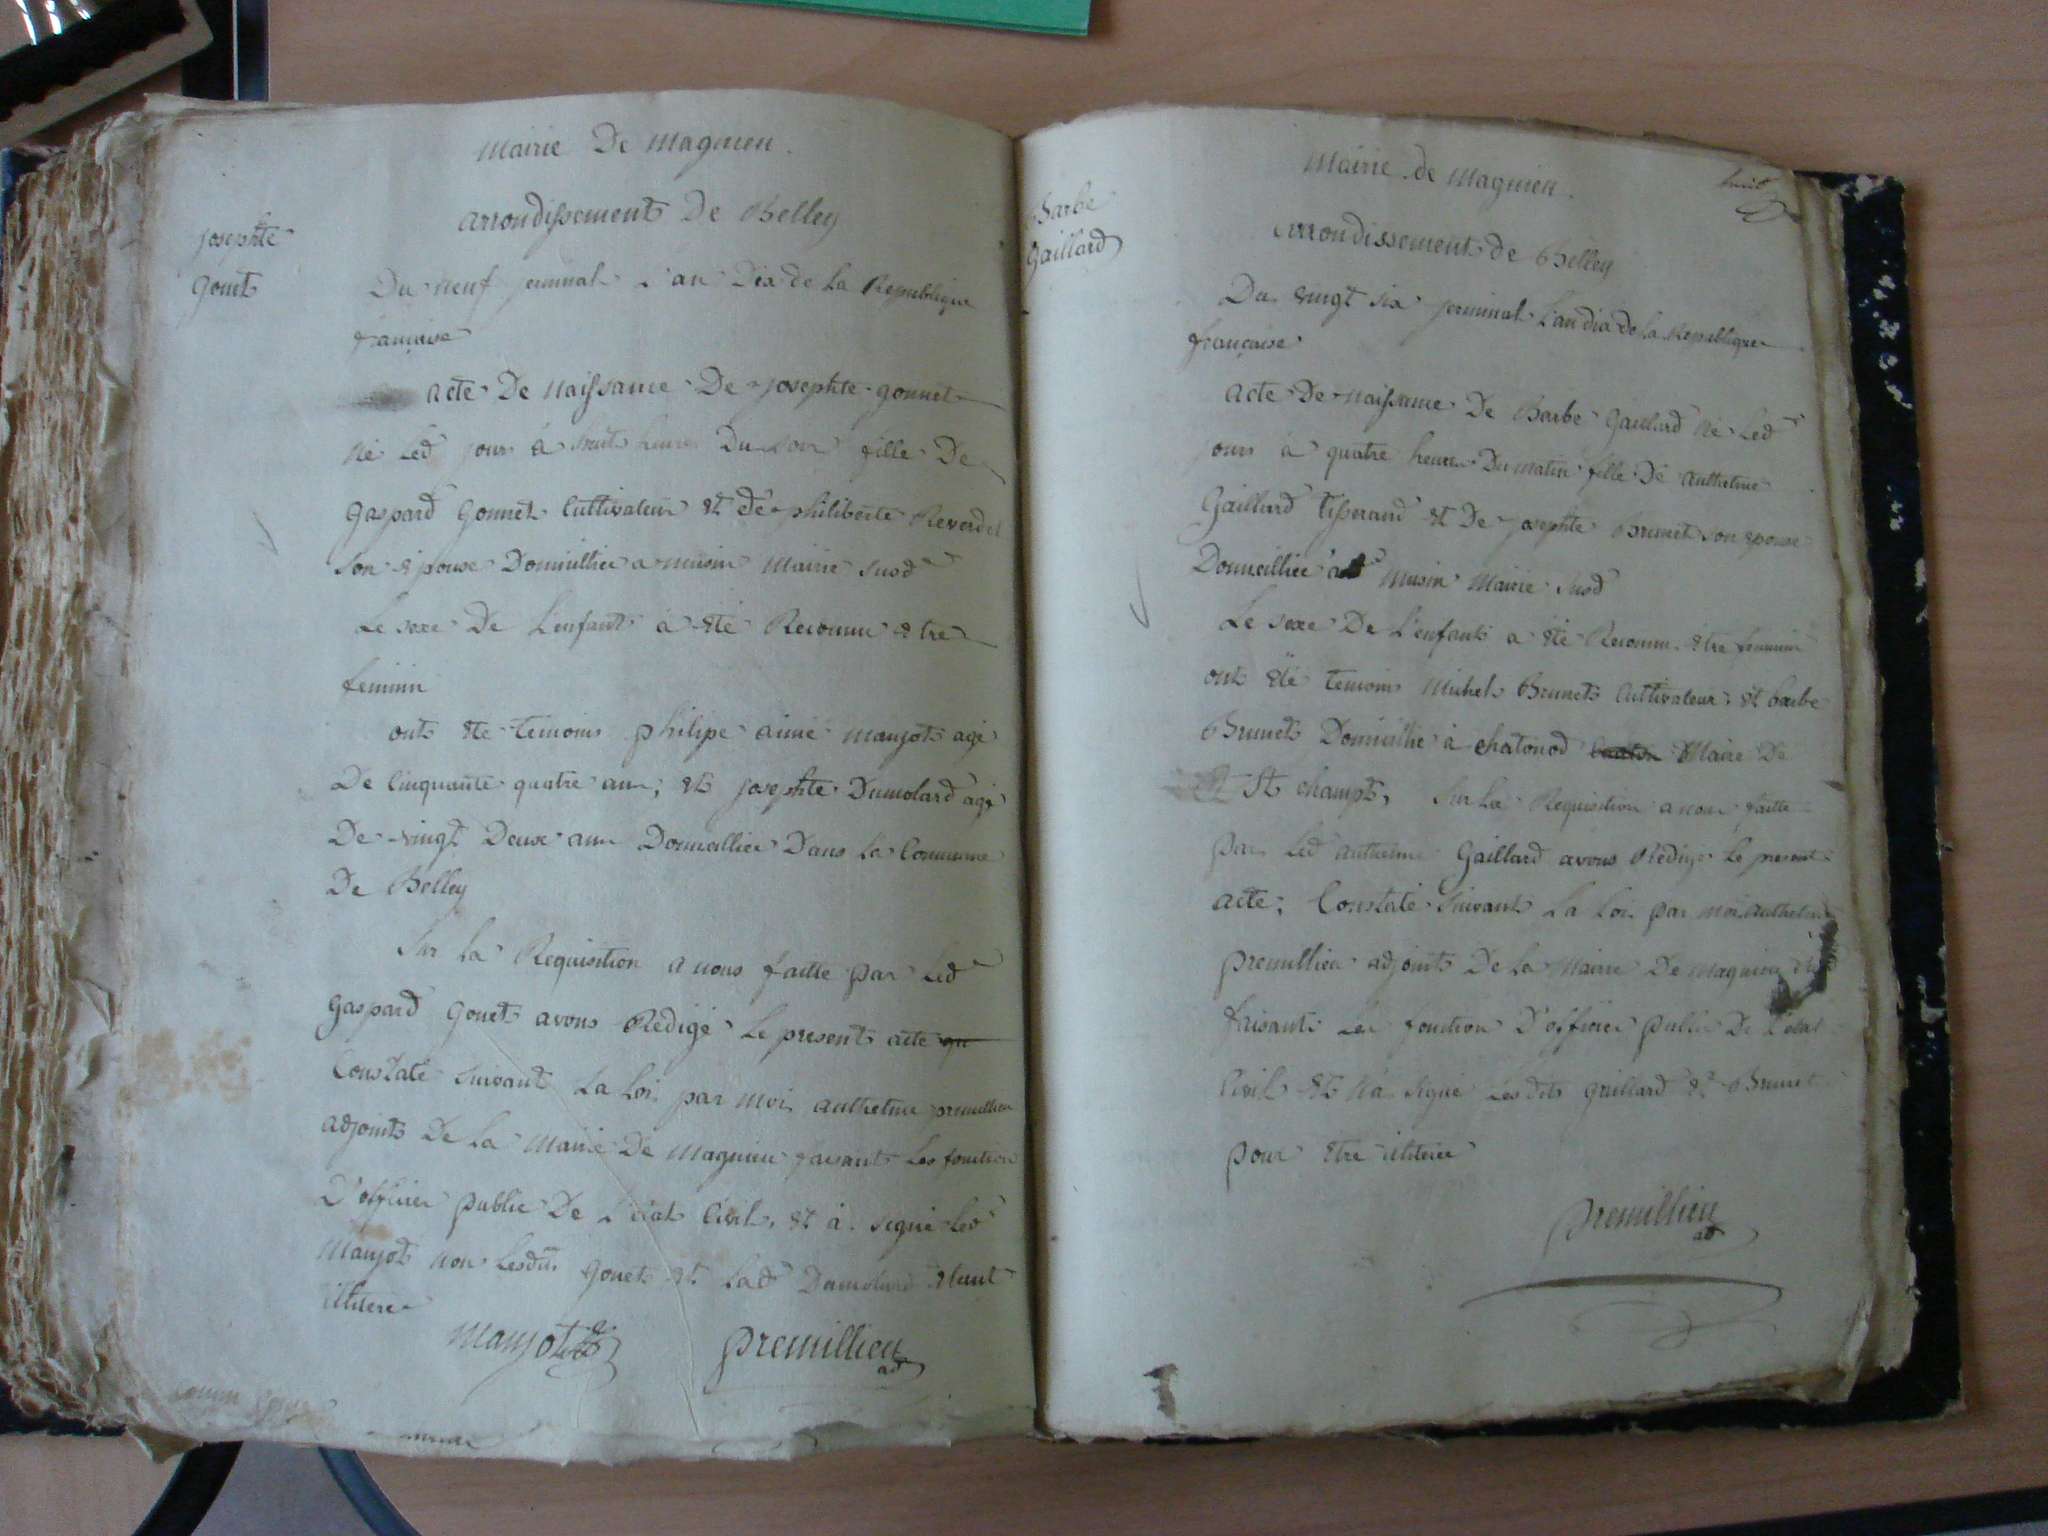 Mairie De Magnieu.
arrondissements De Belley
josephte
gonet
Du neuf jerminal L'an Dix de La Republique
française
acte De naissance De josephte gonnet
né Led jour à huit heures Du soir fille De
gaspard gonnet Cultivateur et de philiberte Reverdel
son epouse Domicillier a musin Mairie susd
Le sexe De L'enfant à été Reconnu etre
feminin
onts ete temoins philipe aimé manjots agé
De Cinquante quatre ans; ets josephte Dumolard agé
De vingt Deux ans Domicillier Dans La Commune
De Belley
Sur La Requisition a nous faitte par Led
gaspard gonets avons Redigé Le presents acte
Constaté suivant La Loi par moi anthelme premillieu
adjoints De La Mairie De Magnieu faisant Les fonction
D'officier public De L'état Civil, et à signé Led
Manjots non Lesdits gonets et Lad Dumolard etant
illitere
Manjot
premillieu
ad
Mairie de Magnieu.
huit
arrondissements de Belley
Barbe
gaillard
Du vingt six jerminal L'an dix de La Republique
française
acte De naissance De Barbe gaillard né Led
jours à quatre heures Du matin fille De anthelme
gaillard tisserand et De josephte Brunet son epouse
Domicillier a musin Mairie susd
Le sexe De L'enfants a été Reconnu etre feminin
onts été temoins Michel Brunets Cultivateur, et barbe
Brunets Domicillié à chatonod Maire De
St champts, sur La Requisition a nous faitte
par Led anthelme gaillard avons Redigé Le present
acte; Constaté suivants La Loi par moi anthelme
premillieu adjoints De La Mairie De Magnieu
faisants Les fonction D'officier public De L'état
Civil ets n'a signé Lesdits gaillard et Brunet
pour etre illiteré
premillieu
ad